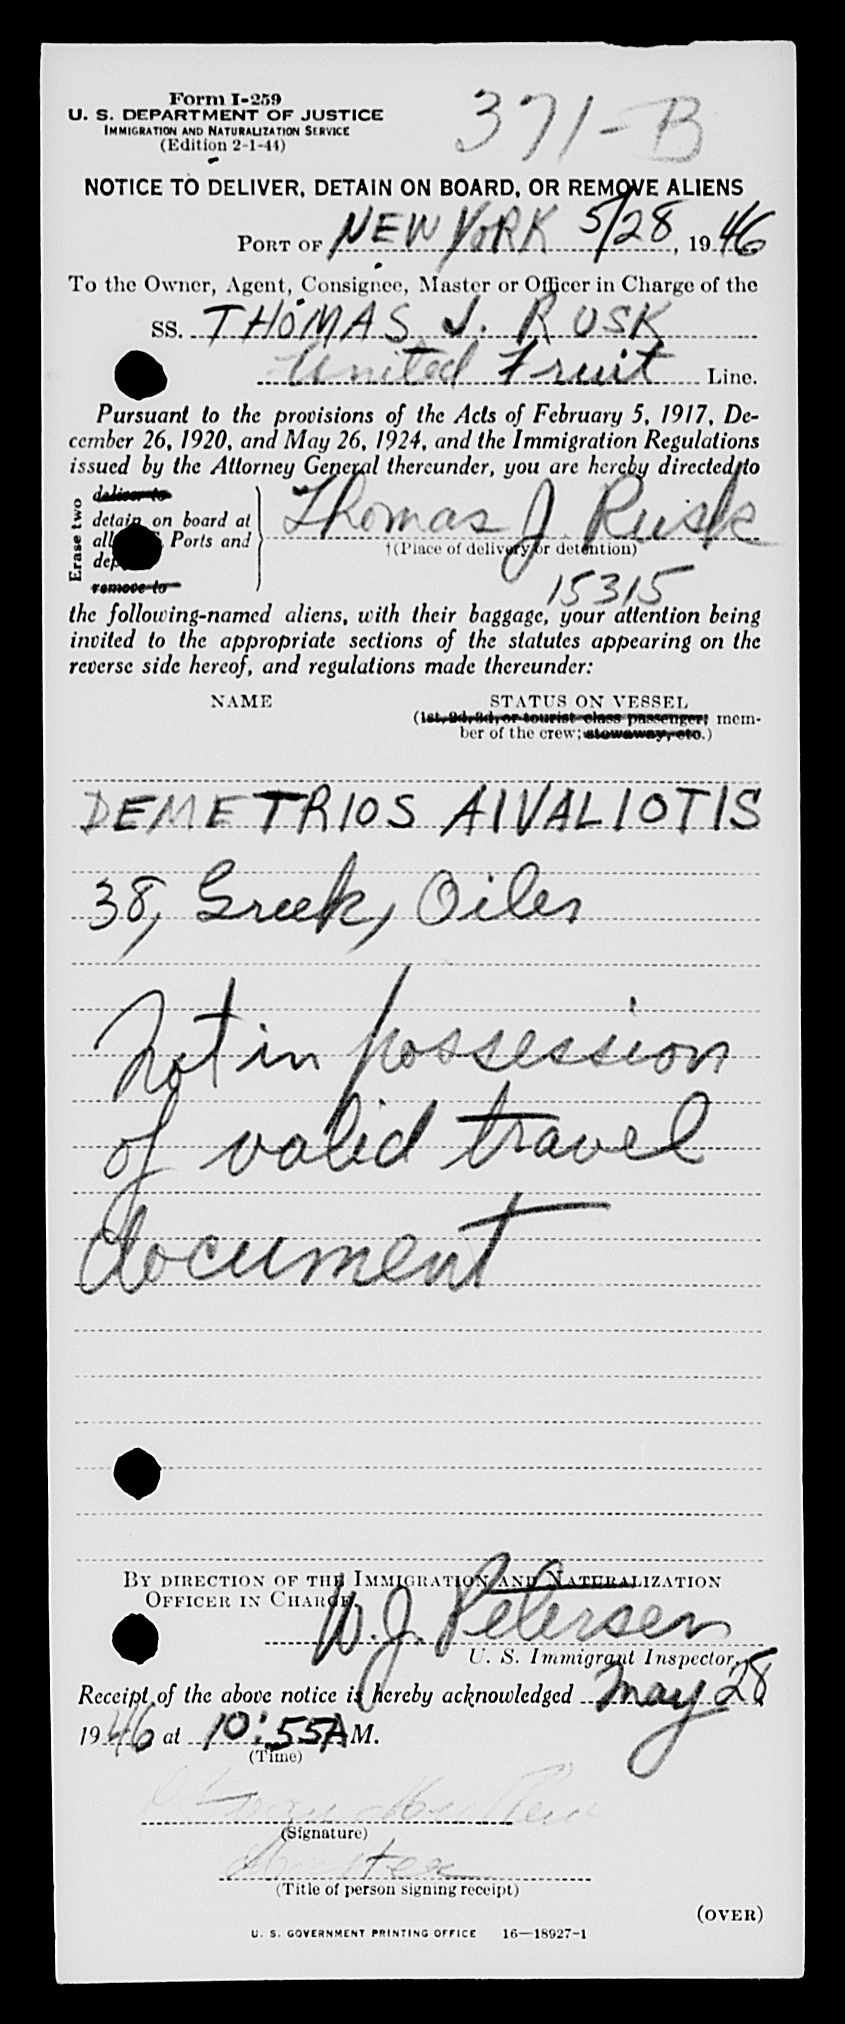 Form I-259
U. S. DEPARTMENT OF JUSTICE
IMMIGRATION AND NATURALIZATION SERVICE
(Edition 2-1-44)
371-B
NOTICE TO DELIVER, DETAIN ON BOARD, OR REMOVE ALIENS
PORT OF NEW YORK 5/28, 1946
To the Owner, Agent, Consignee, Master or Officer in Charge of the
SS. THOMAS J. RUSK
United Fruit Line.
Pursuant to the provisions of the Acts of February 5, 1917, De-
cember 26, 1920, and May 26, 1924, and the Immigration Regulations
issued by the Attorney General thereunder, you are hereby directed to
Erase two
deliver to
detain on board at
all Ports and
remove to
Thomas J. Rusk
†(Place of delivery or detention)
15315
the following-named aliens, with their baggage, your attention being
invited to the appropriate sections of the statutes appearing on the
reverse side hereof, and regulations made thereunder:
NAME STATUS ON VESSEL
(1st, 2d, 3d, or tourist class passenger; mem-
ber of the crew; stowaway, etc.)
DEMETRIOS AIVALIOTIS
38, Greek, Oiler
Not in possession
of valid travel
document
BY DIRECTION OF THE IMMIGRATION AND NATURALIZATION
OFFICER IN CHARGE.
W. J. Petersen
U. S. Immigrant Inspector.
Receipt of the above notice is hereby acknowledged May 28
1946 at 10:55 A M.
(Time)
(Signature)
Master
(Title of person signing receipt)
(OVER)
U. S. GOVERNMENT PRINTING OFFICE 16—18927-1